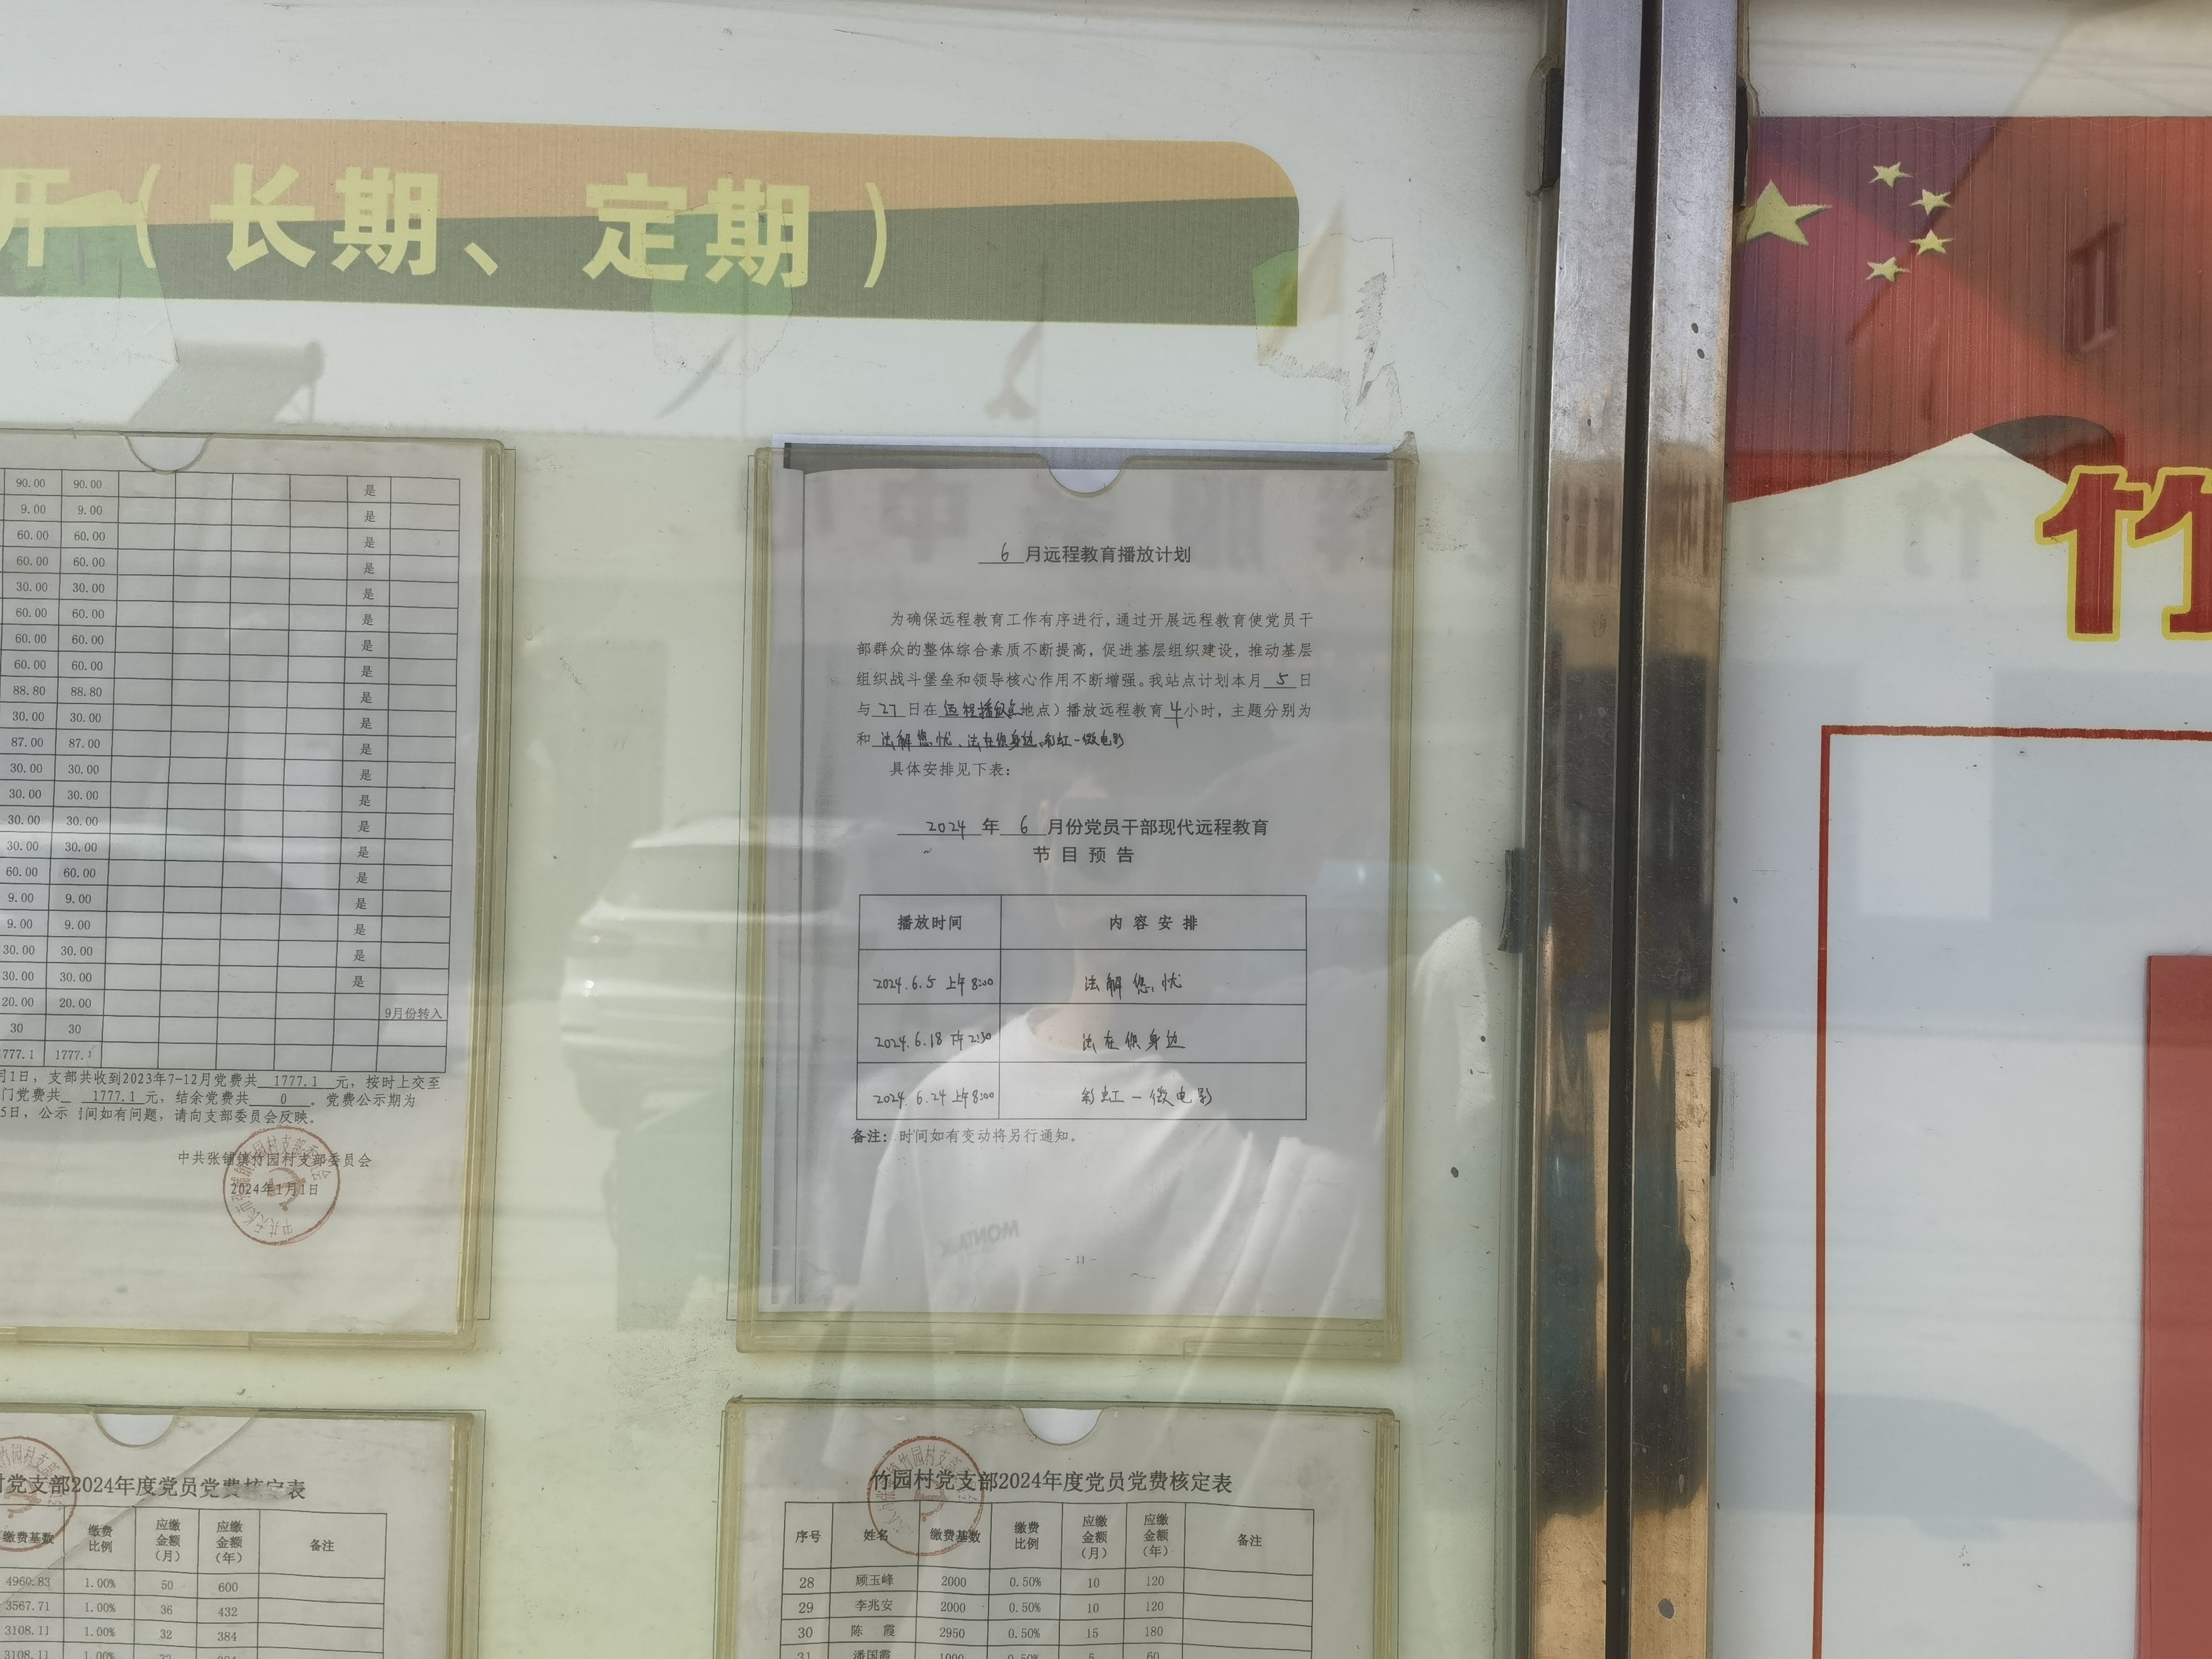 开（长期、定期）
90.00 90.00 是
9.00 9.00 是
60.00 60.00 是
60.00 60.00 是
30.00 30.00 是
60.00 60.00 是
60.00 60.00 是
60.00 60.00 是
88.80 88.80 是
30.00 30.00 是
87.00 87.00 是
30.00 30.00 是
30.00 30.00 是
30.00 30.00 是
30.00 30.00 是
60.00 60.00 是
9.00 9.00 是
9.00 9.00 是
30.00 30.00 是
30.00 30.00 是
20.00 20.00 9月份转入
30 30
777.1 1777.1
月1日，支部共收到2023年7-12月党费共 1777.1 元，按时上交至
门党费共 1777.1 元，结余党费共 0 。党费公示期为
5日，公示 间如有问题，请向支部委员会反映。
中共张铺镇竹园村支部委员会
2024年1月1日
6 月远程教育播放计划
为确保远程教育工作有序进行，通过开展远程教育使党员干
部群众的整体综合素质不断提高，促进基层组织建设，推动基层
组织战斗堡垒和领导核心作用不断增强。我站点计划本月 5 日
与 27 日在 远程播放点地点）播放远程教育 4 小时，主题分别为
和 法解您忧、法在你身边、彩虹-微电影
具体安排见下表：
2024 年 6 月份党员干部现代远程教育
节目预告
播放时间 内容安排
2024.6.5 上午8:00 法解您忧
2024.6.18 下午2:30 法在你身边
2024.6.24 上午8:00 彩虹-微电影
备注：时间如有变动将另行通知。
- 11 -
竹
村党支部2024年度党员党费核定表
缴费基数 缴费比例 应缴金额（月） 应缴金额（年） 备注
4960.83 1.00% 50 600
3567.71 1.00% 36 432
3108.11 1.00% 32 384
3108.11 1.00%
竹园村党支部2024年度党员党费核定表
序号 姓名 缴费基数 缴费比例 应缴金额（月） 应缴金额（年） 备注
28 顾玉峰 2000 0.50% 10 120
29 李兆安 2000 0.50% 10 120
30 陈霞 2950 0.50% 15 180
31 潘国霞 1000 0.50% 5 60